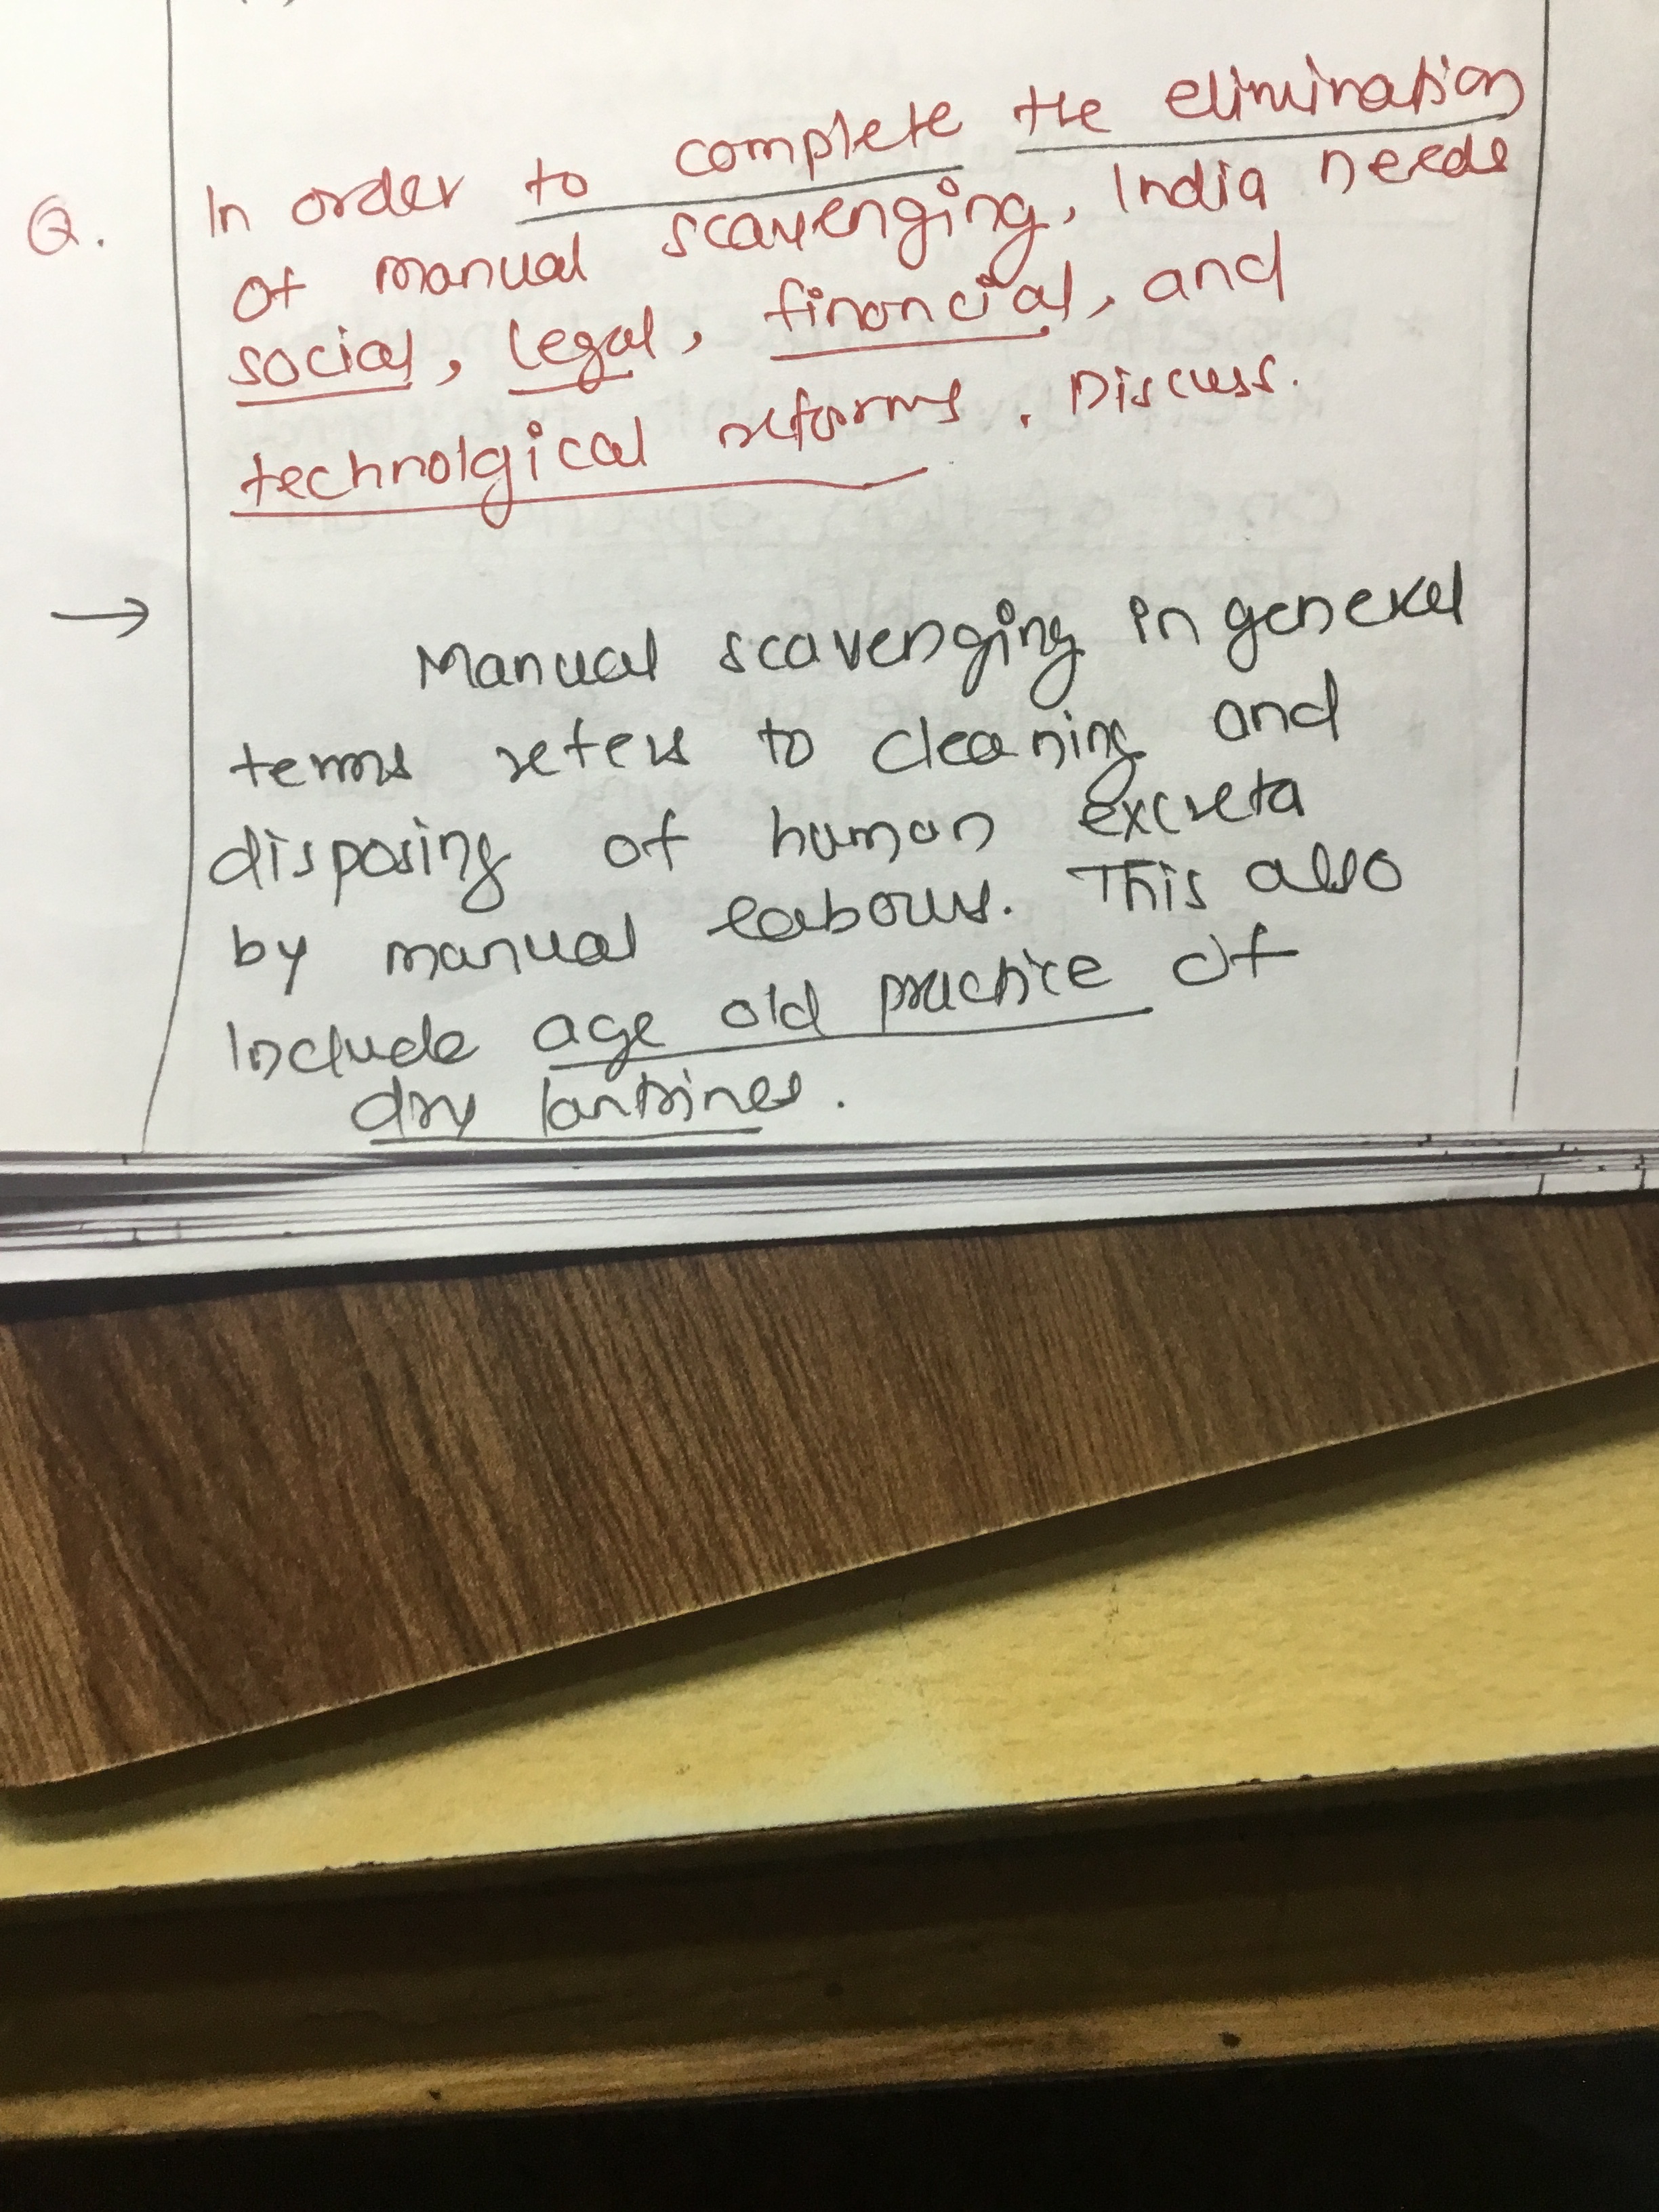 Q. In order to complete the elimination
of manual scavenging, India needs
social, legal, financial, and
technolgical reforms. Discuss.
→ Manual scavenging in general
terms refers to cleaning and
disposing of human excreta
by manual labours. This also
include age old practice of
dry lantrines.